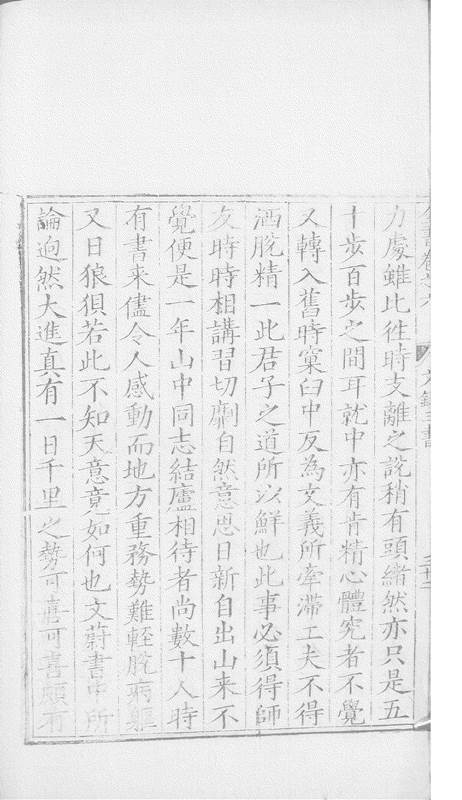 力處雖比徃時支離之說稍有頭緒然亦只是五
十步百步之間耳就中亦有肯精心體究者不覺
又轉入舊時窠臼中反為文義所牽滯工夫不得
洒脫精一此君子之道所以鮮也此事必須得師
友時時相講習切劘自然意思日新自出山来不
覺便是一年山中同志結廬相待者尚數十人時
有書来儘令人感動而地方重務勢難輕脫病軀
又日狼狽若此不知天意竟如何也文蔚書中所
論逈然大進真有一日千里之勢可喜可喜頗有